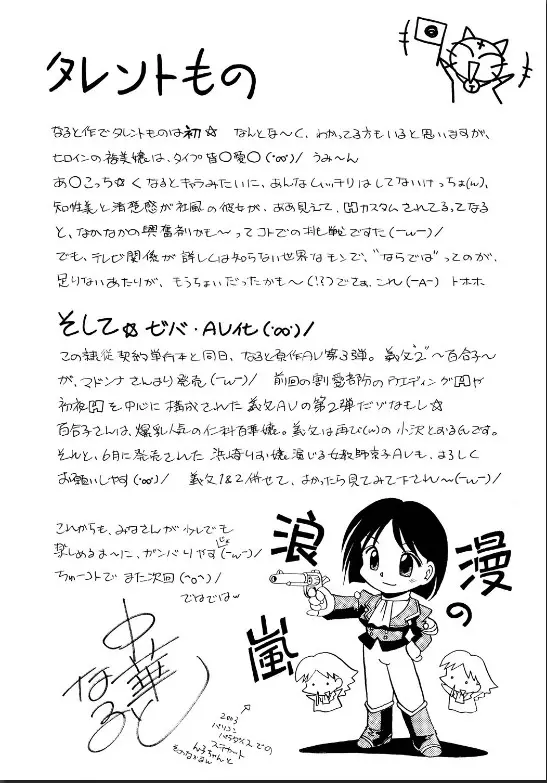 タレントもの
なると作でタレントものは初☆ なんとな〜く、わかってる方もいると思いますが、
ヒロインの裕美嬢は、タイプ皆〇愛〇(･∞･)/ うみ〜ん
あ〇こっち☆くなるとキャラみたいに、あんなムッチリはしてないけっちょ(ω)、
知性美と清楚感が社風の彼女が、ああ見えて、図カスタムされてるってなる
と、なかなかの興奮剤かも〜ってコトでの挑戦ですた(ーωー)/
でも、テレビ関係が詳しくは知らない世界なモンで、"ならでは"ってのが、
足りないあたりが、もうちょいだったかも〜(!?)でてぁ、これ(-A-) トホホ
そして☆ゼバ・AV化(･∞･)/
この隷従契約単行本と同日、なると原作AV第3弾。義父"2"〜百合子〜
が、マドンナさんより発売(ーωー)/ 前回の割愛部分のウエディング図や
初夜図を中心に構成された義父AVの第2弾だゾなもし☆
百合子さんは、爆乳人気の仁科百華嬢。義父は再び(ω)の小沢とおるんです。
それと、6月に発売された浜崎りお嬢演じる女教師京子AVも、よろしく
お願いしやす(･∞･)/ 義父1&2併せて、よかったら見てみて下され〜(ーωー)/
これからも、みなさんが少しでも
楽しめるよーに、ガンバりやす(ーωー)/
ちゅーコトで また次回(^o^)/
でわでわω
浪漫の嵐
中華なると
2003